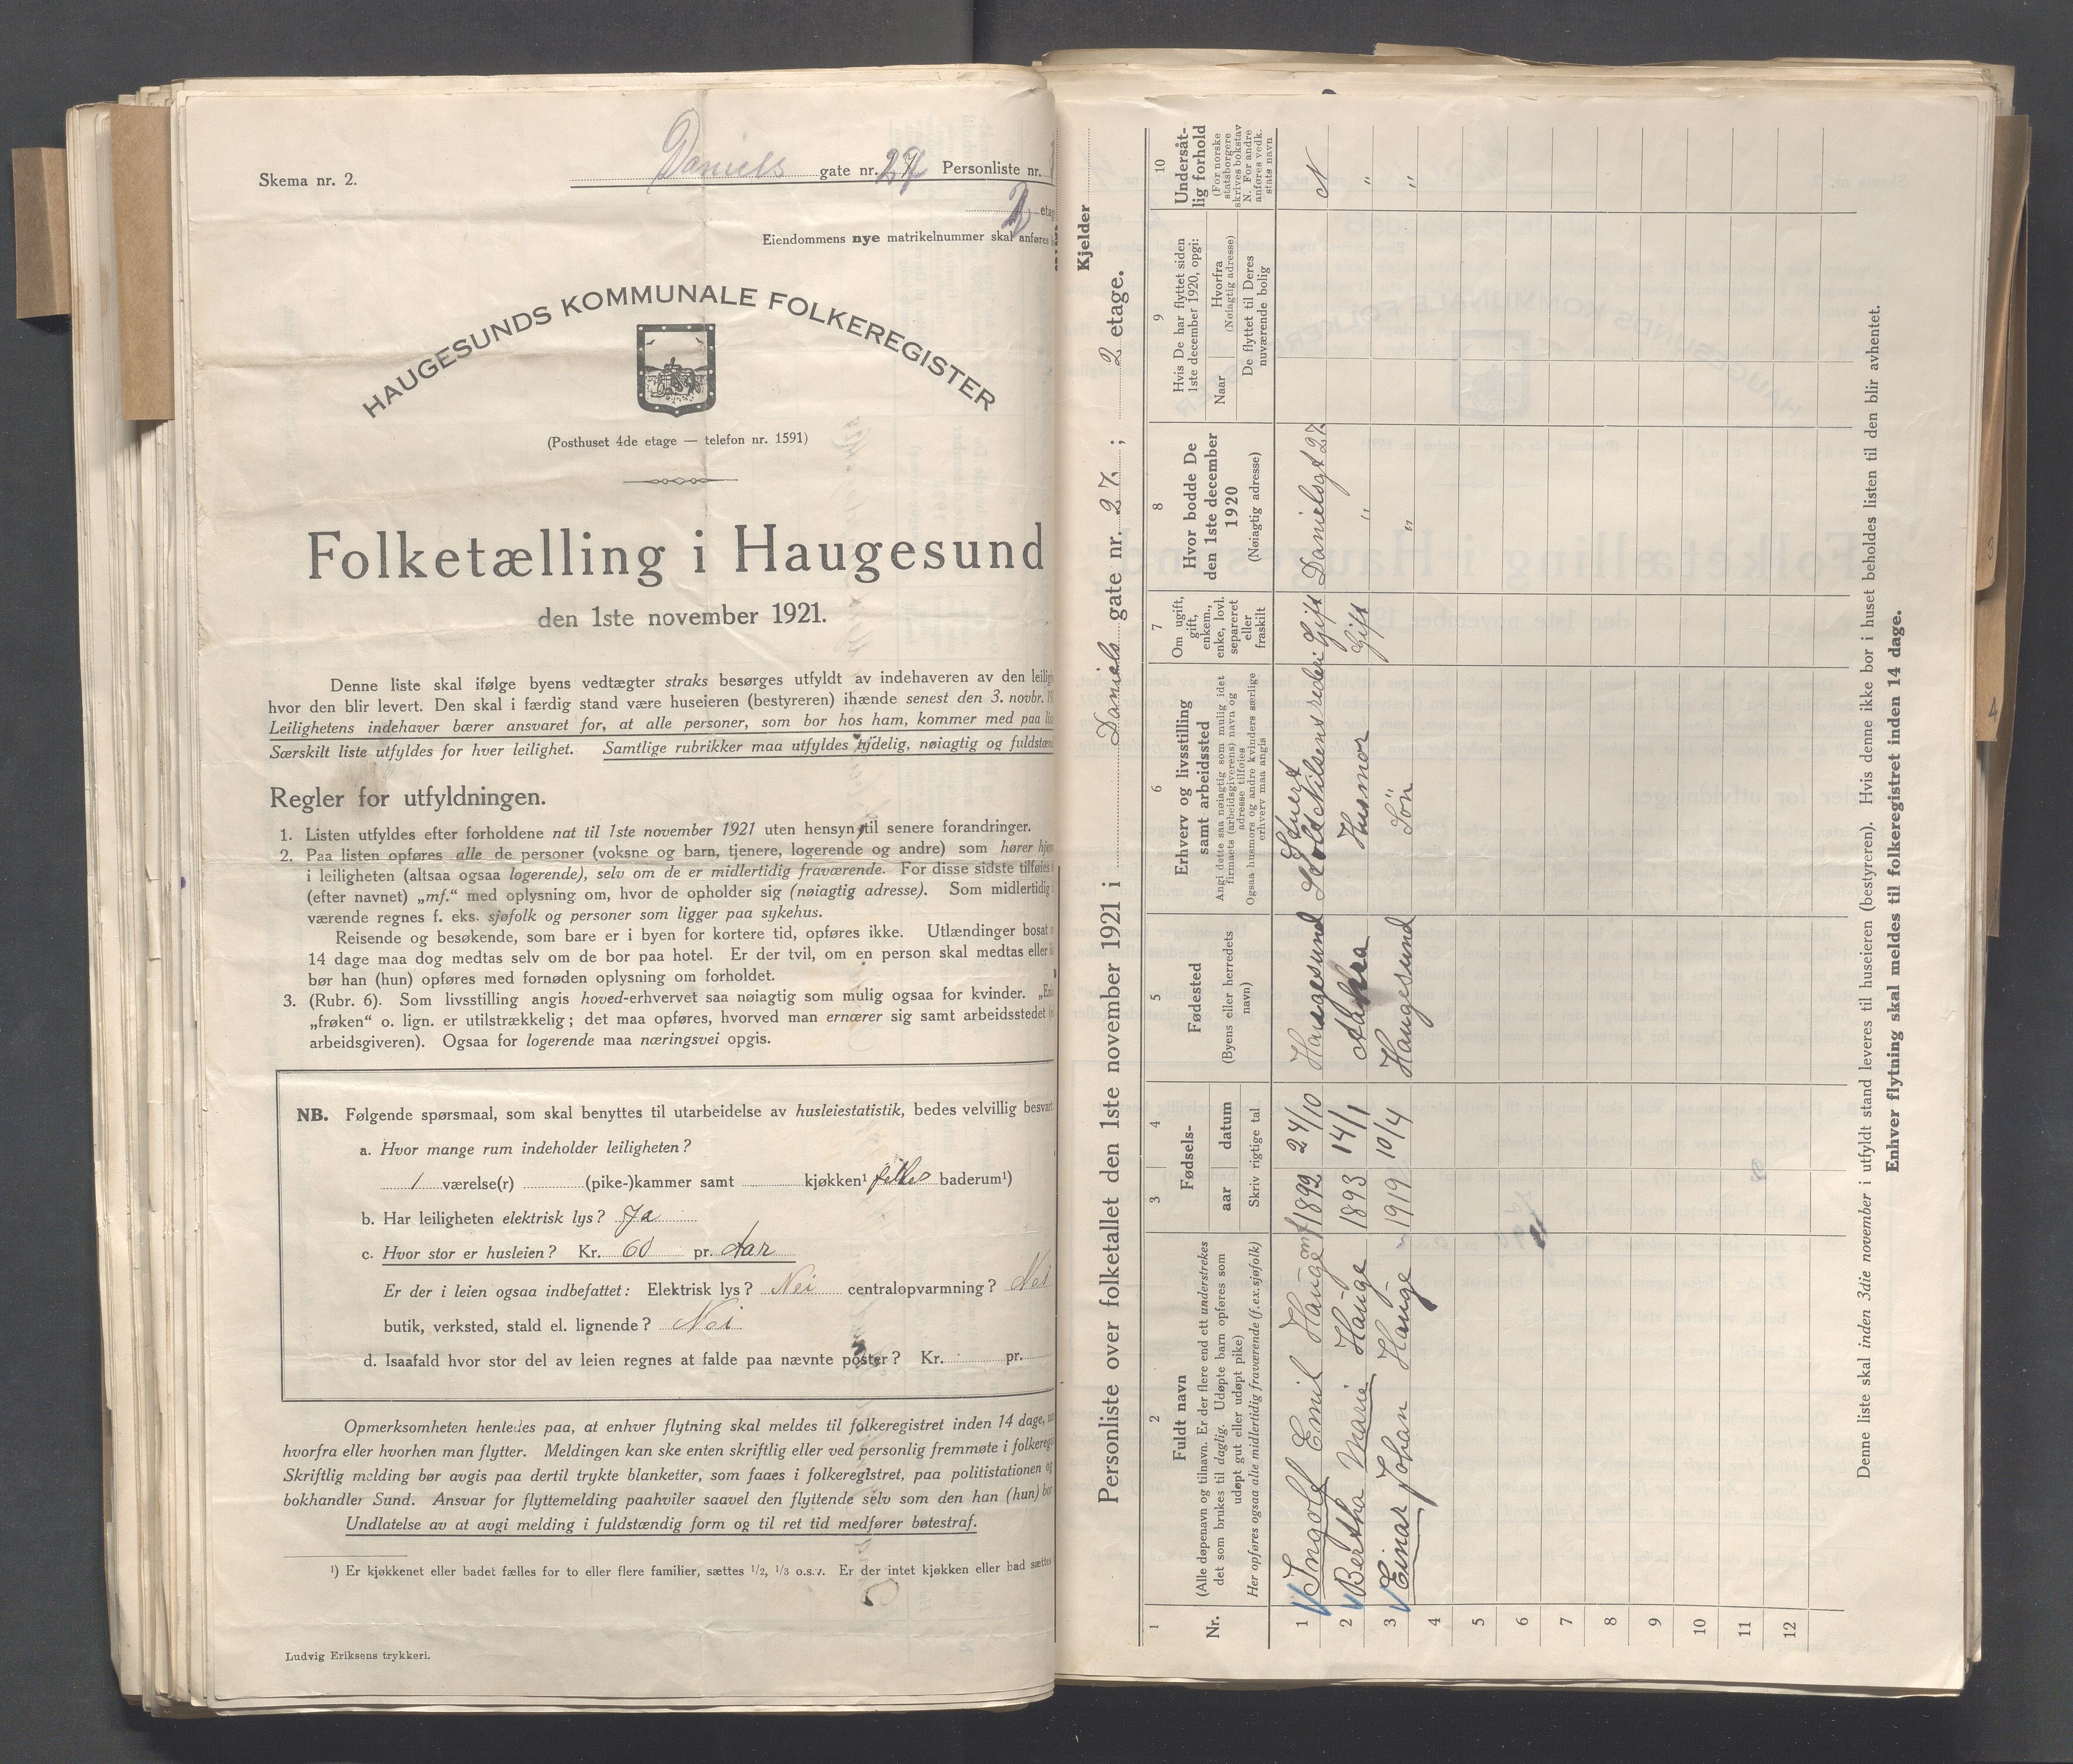 Skema nr. 2.
Daniels gate nr. 27 Personliste nr.
2 etag
Eiendommens nye matrikelnummer skal anføres
HAUGESUNDS KOMMUNALE FOLKEREGISTER
(Posthuset 4de etage — telefon nr. 1591)
Folketælling i Haugesund
den 1ste november 1921.
Denne liste skal ifølge byens vedtægter straks besørges utfyldt av indehaveren av den leilig
hvor den blir levert. Den skal i færdig stand være huseieren (bestyreren) ihænde senest den 3. novbr.
Leilighetens indehaver bærer ansvaret for, at alle personer, som bor hos ham, kommer med paa
Særskilt liste utfyldes for hver leilighet. Samtlige rubrikker maa utfyldes tydelig, nøiagtig og fuldstæn
Regler for utfyldningen.
1. Listen utfyldes efter forholdene nat til 1ste november 1921 uten hensyn til senere forandringer.
2. Paa listen opføres alle de personer (voksne og barn, tjenere, logerende og andre) som hører hjem
i leiligheten (altsaa ogsaa logerende), selv om de er midlertidig fraværende. For disse sidste tilføies
(efter navnet) „mf.“ med oplysning om, hvor de opholder sig (nøiagtig adresse). Som midlertidig
værende regnes f. eks. sjøfolk og personer som ligger paa sykehus.
Reisende og besøkende, som bare er i byen for kortere tid, opføres ikke. Utlændinger bosat
14 dage maa dog medtas selv om de bor paa hotel. Er der tvil, om en person skal medtas eller
bør han (hun) opføres med fornøden oplysning om forholdet.
3. (Rubr. 6). Som livsstilling angis hoved-erhvervet saa nøiagtig som mulig ogsaa for kvinder.
„frøken“ o. lign. er utilstrækkelig; det maa opføres, hvorved man ernærer sig samt arbeidsstedet
arbeidsgiveren). Ogsaa for logerende maa næringsvei opgis.
NB. Følgende spørsmaal, som skal benyttes til utarbeidelse av husleiestatistik, bedes velvillig besvart
a. Hvor mange rum indeholder leiligheten?
1 værelse(r) (pike-)kammer samt kjøkken¹ felles baderum¹)
b. Har leiligheten elektrisk lys? Ja
c. Hvor stor er husleien? Kr. 60 pr. Aar
Er der i leien ogsaa indbefattet: Elektrisk lys? Nei centralopvarmning? Nei
butik, verksted, stald el. lignende? Nei
d. Isaafald hvor stor del av leien regnes at falde paa nævnte poster? Kr. pr.
Opmerksomheten henledes paa, at enhver flytning skal meldes til folkeregistret inden 14 dage,
hvorfra eller hvorhen man flytter. Meldingen kan ske enten skriftlig eller ved personlig fremmøte i folkeregi
Skriftlig melding bør avgis paa dertil trykte blanketter, som faaes i folkeregistret, paa politistationen og
bokhandler Sund. Ansvar for flyttemelding paahviler saavel den flyttende selv som den han (hun) bor
Undlatelse av at avgi melding i fuldstændig form og til ret tid medfører bøtestraf.
¹) Er kjøkkenet eller badet fælles for to eller flere familier, sættes 1/2, 1/3 o.s.v. Er der intet kjøkken eller bad sættes
Ludvig Eriksens trykkeri.
Kjelder
Personliste over folketallet den 1ste november 1921 i Daniels gate nr. 27.; 2 etage.
1 2 3 4 5 6 7 8 9 10
Nr.
Fuldt navn
(Alle døpenavn og tilnavn. Er der flere end ett understrekes
det som brukes til daglig. Udøpte barn opføres som
udøpt gut eller udøpt pike)
Her opføres ogsaa alle midlertidig fraværende (f.ex. sjøfolk)
Fødsels-
aar datum
Skriv rigtige tal
Fødested
(Byens eller herredets
navn)
Erhverv og livsstilling
samt arbeidssted
Angi dette saa nøiagtig som mulig idet
firmaets (arbeidsgiverens) navn og
adresse tilføies
Ogsaa husmors og andre kvinders særlige
erhverv maa angis
Om ugift,
gift,
enkem.,
enke, lovl.
separeret
eller
fraskilt
Hvor bodde De
den 1ste december
1920
(Nøiagtig adresse)
Hvis De har flyttet siden
1ste december 1920, opgi:
Naar
Hvorfra
(Nøiagtig adresse)
De flyttet til Deres
nuværende bolig
Undersåt-
lig forhold
(For norske
statsborgere
skrives bokstav
N. For andre
anføres vedk.
stats navn
1 Ingolf Emil Hauge mf 1892 24/10 Haugesund Stuert Skold Nilsens rederi Gift Danielsgt 27 N
2 Bertha Marie Hauge 1893 14/1 Aakra Husmor Gift " "
3 Einar Johan Hauge 1919 10/4 Haugesund Sön " "
4
5
6
7
8
9
10
11
12
Denne liste skal inden 3die november i utfyldt stand leveres til huseieren (bestyreren). Hvis denne ikke bor i huset beholdes listen til den blir avhentet.
Enhver flytning skal meldes til folkeregistret inden 14 dage.